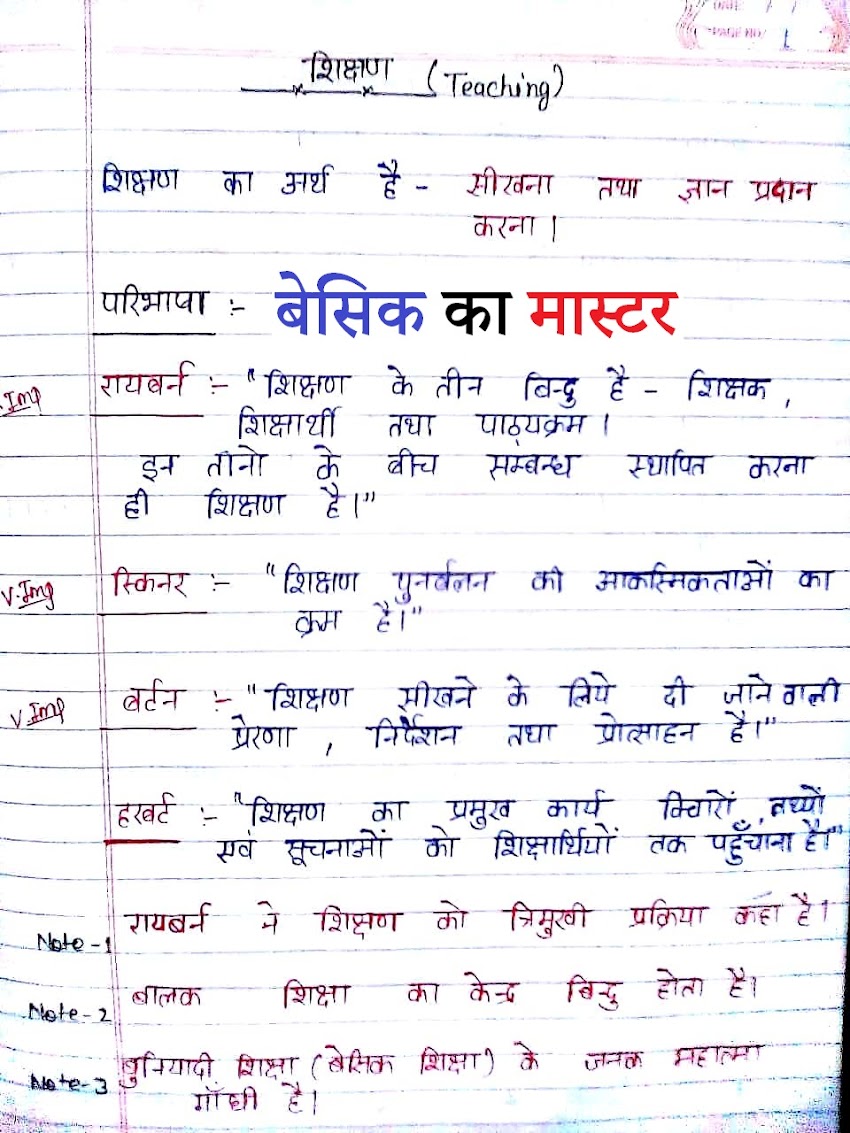 PAGE NO. 1
शिक्षण (Teaching)
शिक्षण का अर्थ है - सीखना तथा ज्ञान प्रदान
करना।
परिभाषा :- बेसिक का मास्टर
Imp रायबर्न :- "शिक्षण के तीन बिन्दु है - शिक्षक,
शिक्षार्थी तथा पाठ्यक्रम।
इन तीनो के बीच सम्बन्ध स्थापित करना
ही शिक्षण है।"
V.Imp स्किनर :- "शिक्षण पुनर्बलन की आकस्मिकताओं का
क्रम है।"
V.Imp बर्टन :- "शिक्षण सीखने के लिये दी जाने वाली
प्रेरणा, निर्देशन तथा प्रोत्साहन है।"
हरबर्ट :- "शिक्षण का प्रमुख कार्य विचारों, तथ्यों
एवं सूचनाओं को शिक्षार्थियों तक पहुँचाना है।"
Note-1 रायबर्न ने शिक्षण को त्रिमुखी प्रक्रिया कहा है।
Note-2 बालक शिक्षा का केन्द्र बिन्दु होता है।
Note-3 बुनियादी शिक्षा (बेसिक शिक्षा) के जनक महात्मा
गाँधी है।